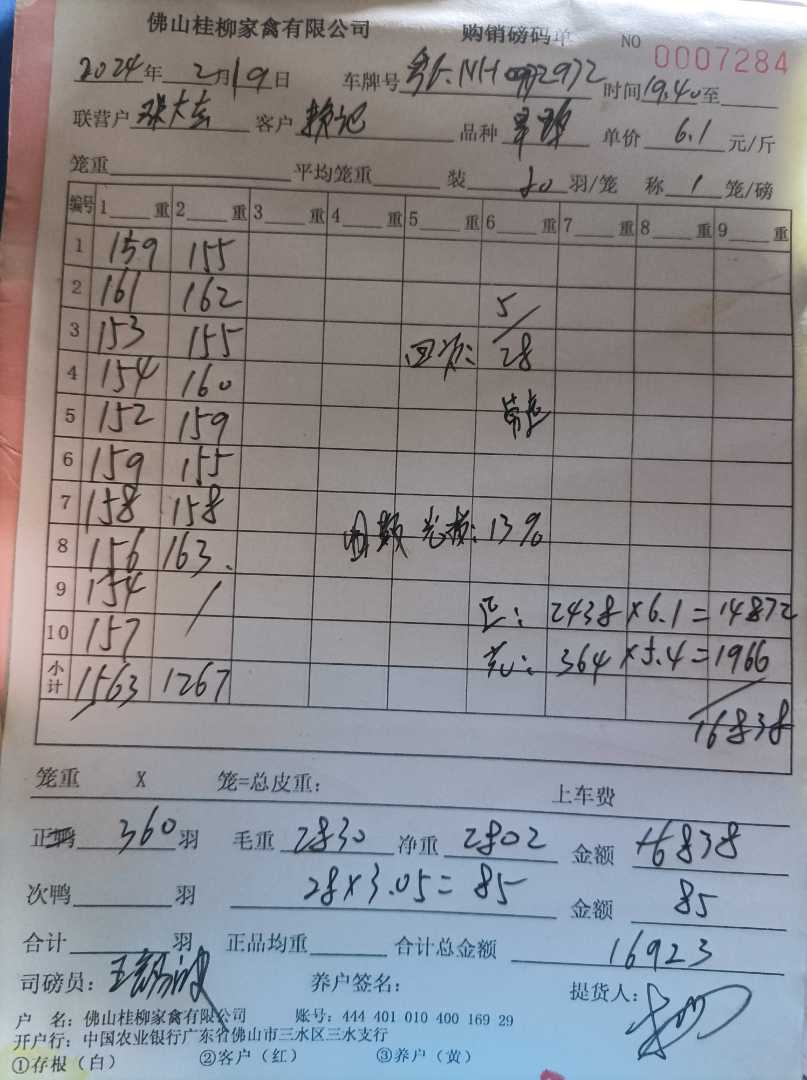 佛山桂柳家禽有限公司 购销磅码单 NO 0007284
2024年2月19日 车牌号 NH 2972 时间19.40至
联营户 张大 客户 赖记 品种 单价 6.1 元/斤
笼重 平均笼重 装 20 羽/笼 称 1 笼/磅
编号 1 重 2 重 3 重 4 重 5 重 6 重 7 重 8 重 9 重
1 159 155
2 161 162 5
3 153 155 回次: 28
4 154 160
5 152 159
6 159 155
7 158 158
8 156 163. 13%
9 154 / 正: 2438×6.1=14872
10 157 364×5.4=1966
小计 1563 1267 16838
笼重 X 笼=总皮重: 上车费
正鸭 360 羽 毛重 2830 净重 2802 金额 16838
次鸭 羽 28×3.05=85 金额 85
合计 羽 正品均重 合计总金额 16923
司磅员: 养户签名: 提货人:
户 名: 佛山桂柳家禽有限公司 账号: 444 401 010 400 169 29
开户行: 中国农业银行广东省佛山市三水区三水支行
①存根(白) ②客户(红) ③养户(黄)